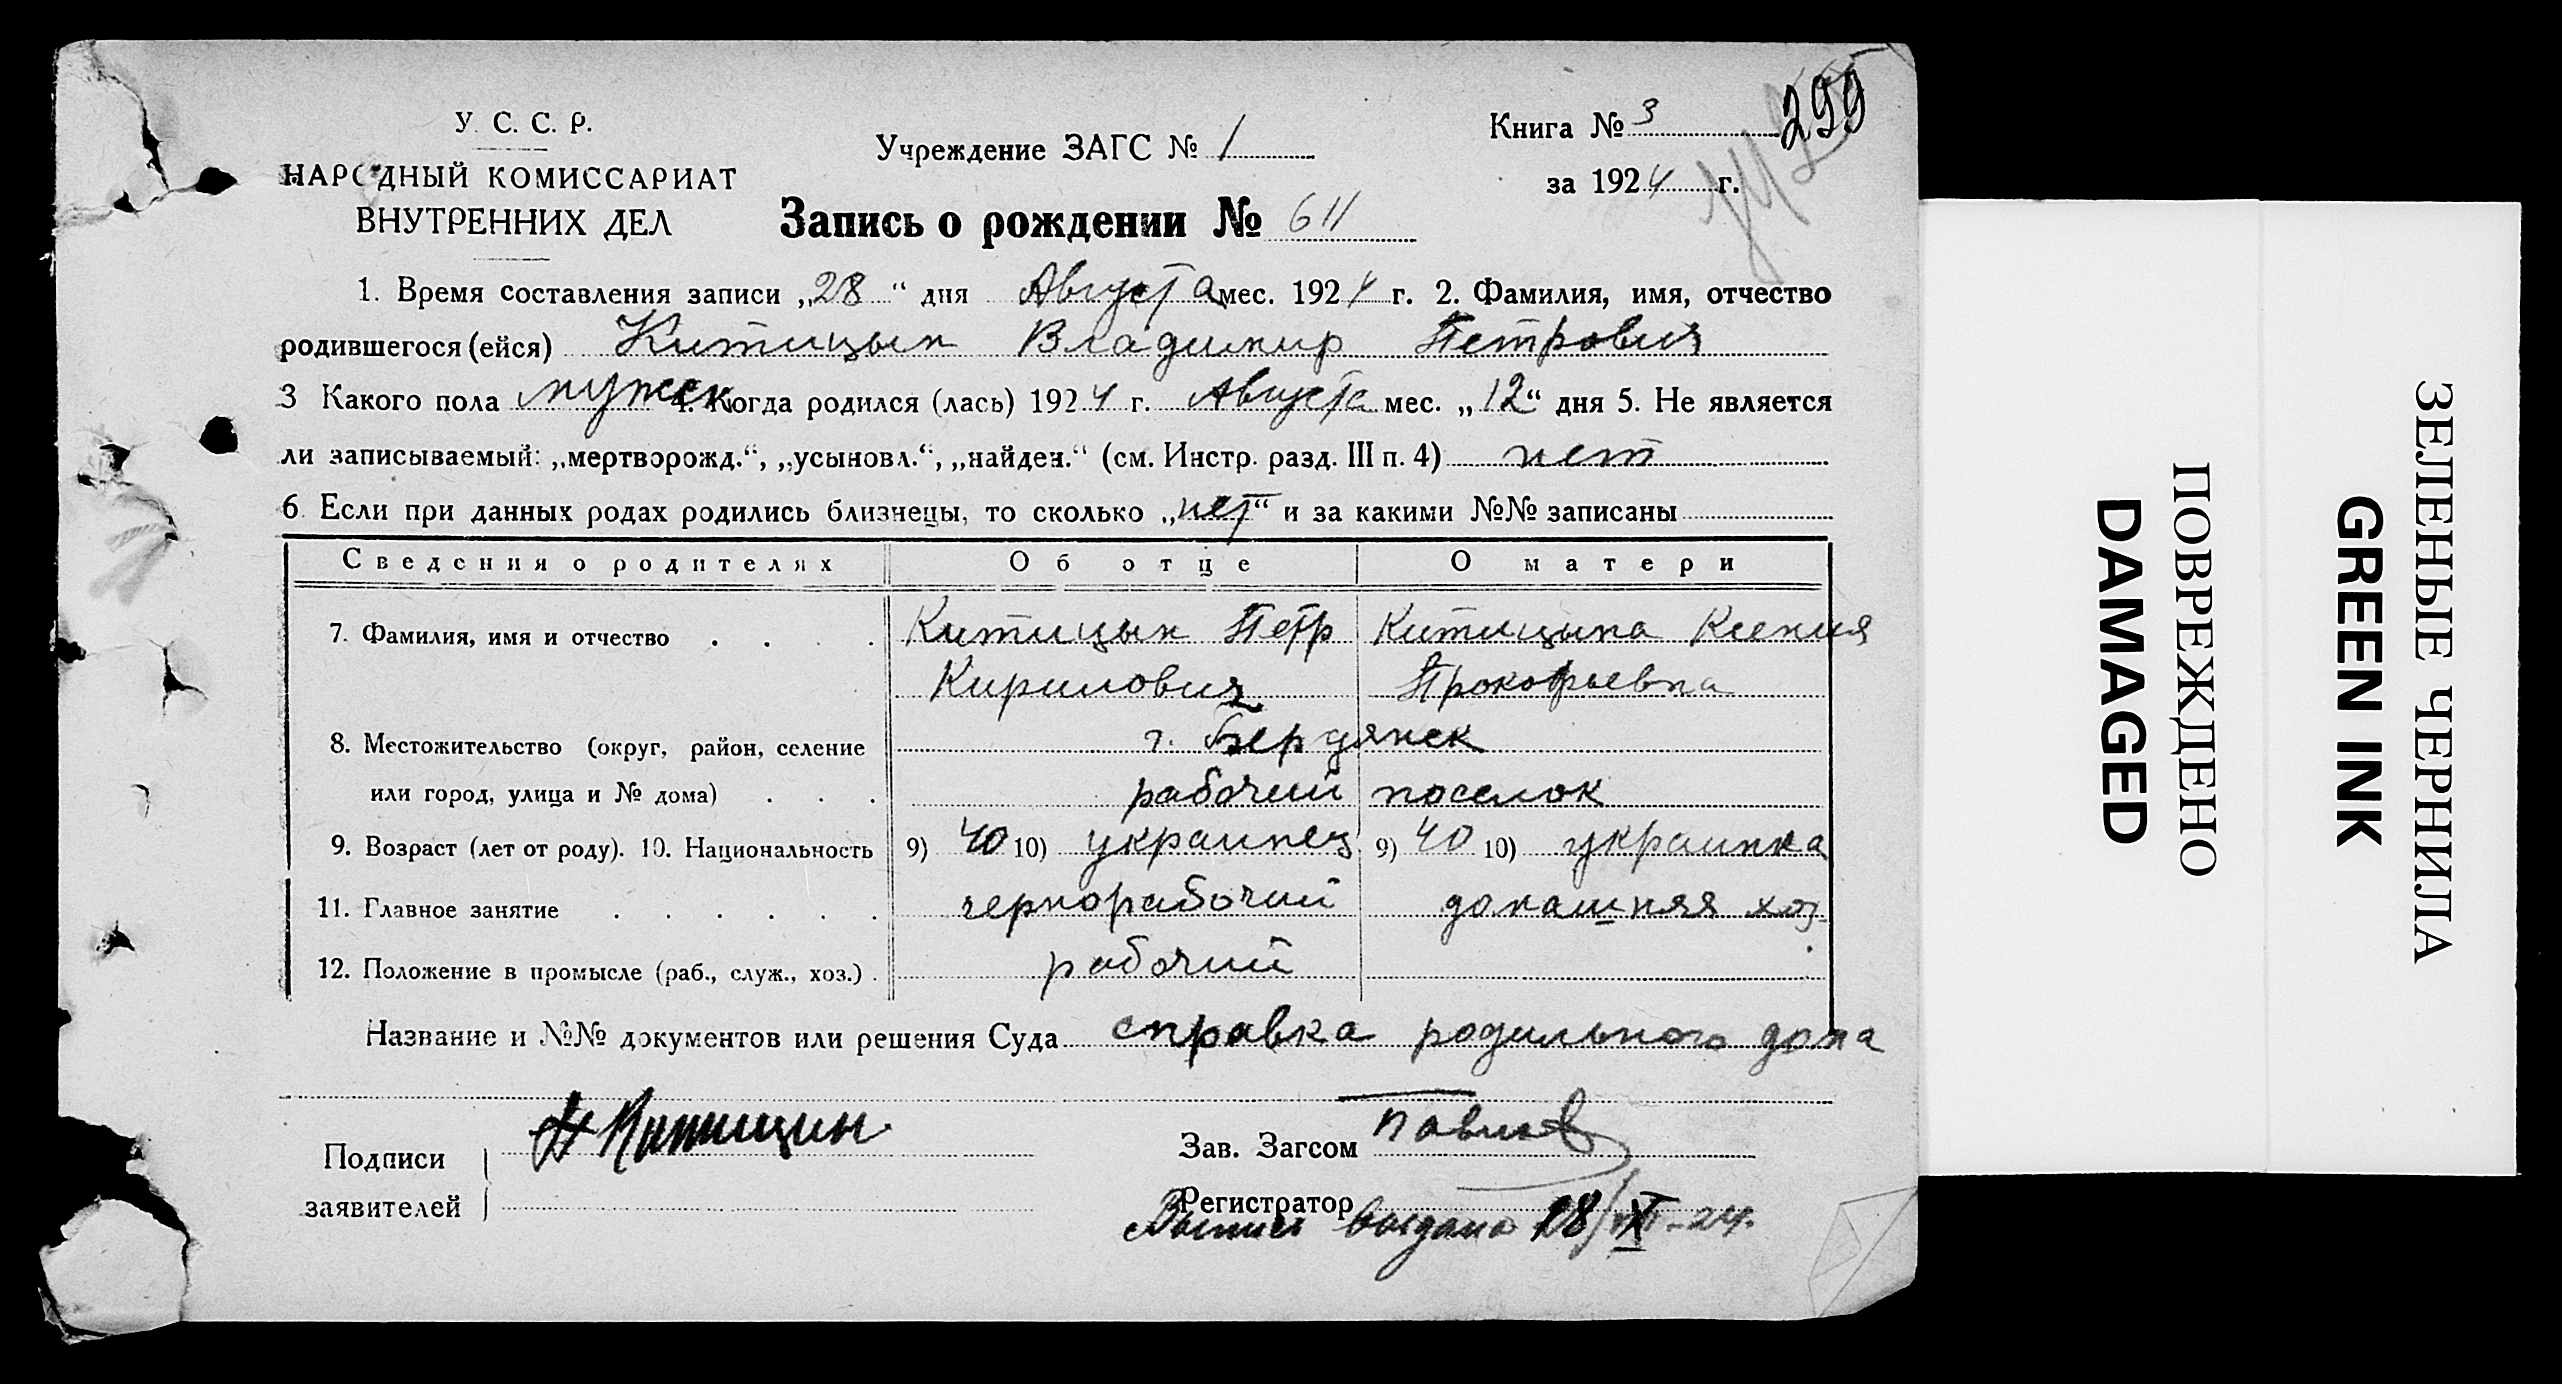 299
У. С. С. Р.
НАРОДНЫЙ КОМИССАРИАТ
ВНУТРЕННИХ ДЕЛ
Учреждение ЗАГС № 1
Книга № 3
за 1924 г.
Запись о рождении № 611
1. Время составления записи „28“ дня Августа мес. 1924 г. 2. Фамилия, имя, отчество
родившегося (ейся) Китицын Владимир Петрович
3 Какого пола мужск 4. Когда родился (лась) 1924 г. Августа мес. „12“ дня 5. Не является
ли записываемый: „мертворожд.“, „усыновл.“, „найден.“ (см. Инстр. разд. III п. 4) нет
6. Если при данных родах родились близнецы, то сколько „нет“ и за какими №№ записаны
Сведения о родителях Об отце О матери
7. Фамилия, имя и отчество . . . . Китицын Петр Китицына Ксения
Кирилович Прокофьевна
8. Местожительство (округ, район, селение г. Бердянск
или город, улица и № дома) . . . рабочий поселок
9. Возраст (лет от роду). 10. Национальность 9) 40 10) украинец 9) 40 10) украинка
11. Главное занятие . . . . . . чернорабочий домашняя хоз.
12. Положение в промысле (раб., служ., хоз.) . рабочий
Название и №№ документов или решения Суда справка родильного дома
Подписи
заявителей
Китицин
Зав. Загсом Павлов
Регистратор
Выпись выдана 28/XI-24.
ПОВРЕЖДЕНО
DAMAGED
ЗЕЛЕНЫЕ ЧЕРНИЛА
GREEN INK